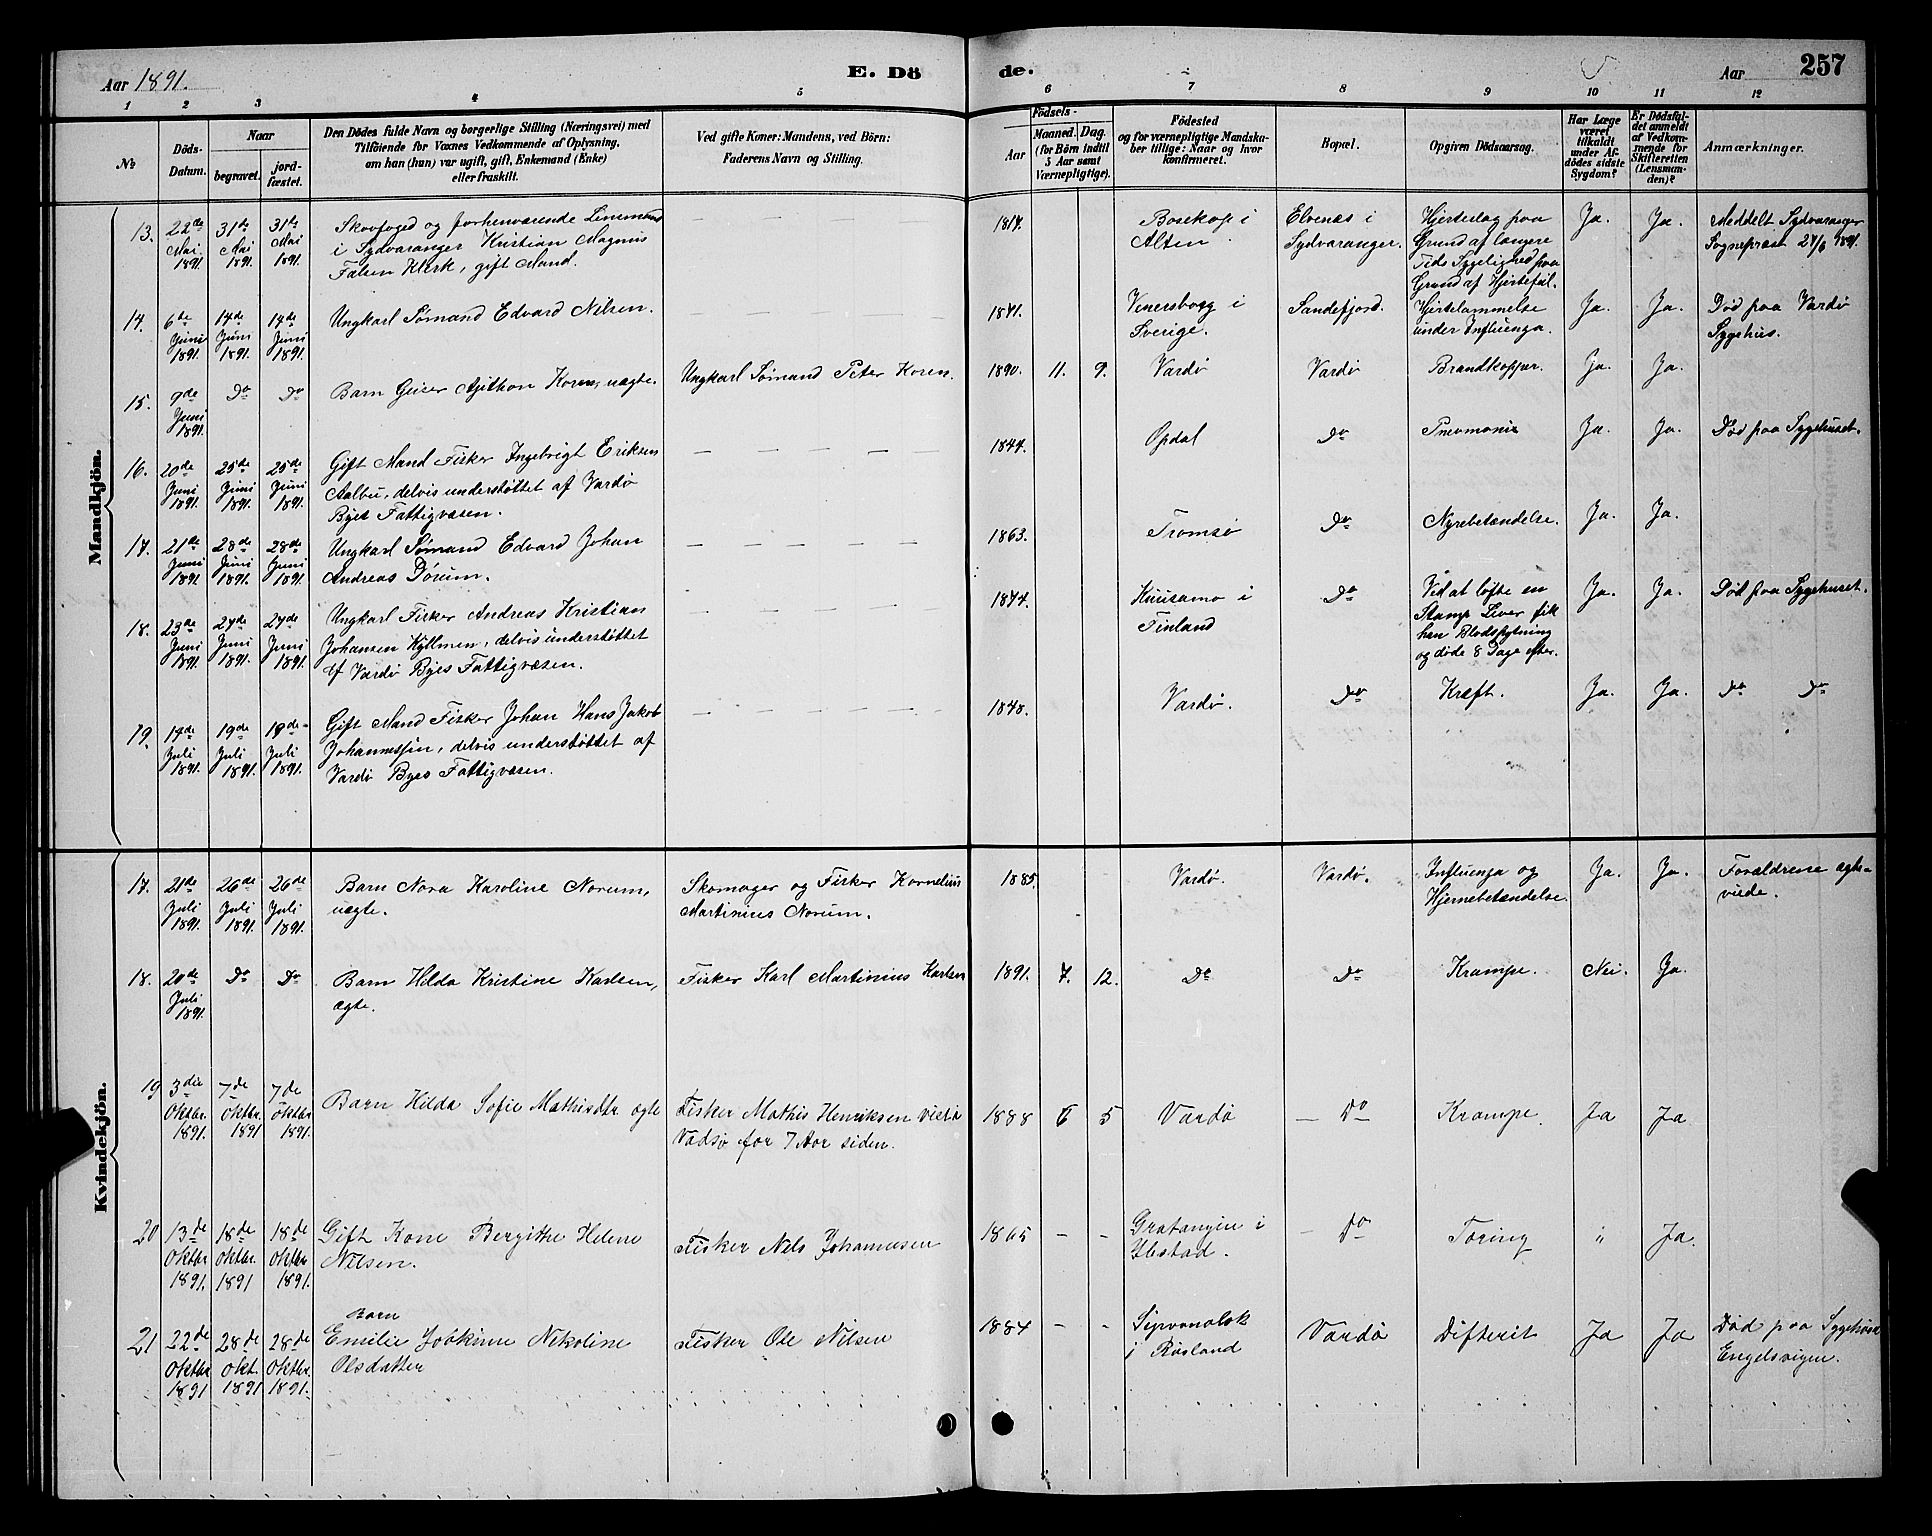 Aar 1891.
E. Dö
de.
Aar
257
1 2 3 4 5
6 7 8 9 10 11 12
No
Döds-Datum.
Naar
begravet.
jord-fæstet.
Den Dödes fulde Navn og borgerlige Stilling (Næringsvei) med
Tilföiende for Voxnes Vedkommende af Oplysning,
om han (hun) var ugift, gift, Enkemand (Enke)
eller fraskilt.
Ved gifte Koner: Mandens, ved Börn:
Faderens Navn og Stilling.
Födsels-
Aar
Maaned. Dag.
(for Börn indtil
5 Aar samt
Værnepligtige).
Födested
og for værnepligtige Mandska-
ber tillige: Naar og hvor
konfirmeret.
Bopæl.
Opgiven Dödsaarsag.
Har Læge
været
tilkaldt
under Af-
dödes sidste
Sygdom?
Er Dödsfal-
det anmeldt
af Vedkom-
mende for
Skifteretten
(Lensman-
den)?
Anmærkninger.
Mandkjön.
13. 22de Mai 1891. 31te Mai 1891. 31te Mai 1891.
Skovfoged og forhenværende Lensmand
i Sydvaranger Kristian Magnus
Falsen Klerk, gift Mand.
1817.
Bosekop i
Alten
Elvenæs i
Sydvaranger.
Hjerteslag paa
Grund af længere
Tids Sygelighed paa
Grund af Hjertefeil.
Ja. Ja.
Meddelt Sydvaranger
Sognepræst 27/6 1891.
14. 6de Juni 1891. 14de Juni 1891. 14de Juni 1891.
Ungkarl Sømand Edvard Nilsen.
1841.
Venersborg i
Sverige.
Sandefjord.
Hjertelammelse
under Influenza.
Ja. Ja.
Død paa Vardø
Sygehus.
15. 9de Juni 1891. Do Do
Barn Geiser Ajithon Koren, uægte.
Ungkarl Sømand Peter Koren.
1890. 11. 9.
Vardø
Vardø
Brandkopper.
Ja. Ja.
16. 20de Juni 1891. 25de Juni 1891. 25de Juni 1891.
Gift Mand Fisker Ingebrigt Eriksen
Aalbu, delvis understøttet af Vardø
Byes Fattigvæsen.
1844.
Opdal
Do
Pneumonie
Ja. Ja.
Død paa Sygehuset.
17. 21de Juni 1891. 28de Juni 1891. 28de Juni 1891.
Ungkarl Sømand Edvard Johan
Andreas Dørum.
1863.
Tromsø
Do
Nyrebetændelse.
Ja. Ja.
18. 23de Juni 1891. 27de Juni 1891. 27de Juni 1891.
Ungkarl Fisker Andreas Kristian
Johansen Kyllmen, delvis understøttet
af Vardø Byes Fattigvæsen.
1874.
Kuusamo i
Finland
Do
Ved at løfte en
Stamp Lever fik
han Blodspytning
og døde 8 Dage efter.
Ja. Ja.
Død paa Sygehuset.
19. 17de Juli 1891. 19de Juli 1891. 19de Juli 1891.
Gift Mand Fisker Johan Hans Jakob
Johannessen, delvis understøttet af
Vardø Byes Fattigvæsen.
1848.
Vardø.
Do
Kræft.
Ja. Ja.
Do Do
Kvindekjön.
17. 21de Juli 1891. 26de Juli 1891. 26de Juli 1891.
Barn Nora Karoline Norum,
uægte.
Skomager og Fisker Kornelius
Martinius Norum.
1885.
Vardø.
Vardø.
Influenza og
Hjernebetændelse.
Ja. Ja.
Forældrene ægte-
viede.
18. 20de Juli 1891. Do Do
Barn Hilda Kristine Karlsen,
ægte.
Fisker Karl Martinius Karlsen
1891. 7. 12.
Do
Do
Krampe.
Nei. Ja.
19 3die Oktbr. 1891. 7de Oktbr. 1891 7de Oktbr. 1891.
Barn Hilda Sofie Mathisdtr ægte
Fisker Mathis Henriksen viet i
Vadsø for 7 Aar siden.
1888 6 5
Vardø
Do
Krampe.
Ja Ja
20 13de Oktbr 1891. 18de Oktbr. 1891 18de Oktbr 1891.
Gift Kone Bergitte Helene
Nilsen.
Fisker Nils Johannesen
1865 - -
Gratangen i
Ibestad.
Do
Tæring
" Ja.
21 22de Oktbr 1891 28de Okt. 1891 28de Oktbr. 1891.
Barn
Emilie Jobkine Nikoline
Olsdatter
Fisker Ole Nilsen
1884 - -
i Rusland
Vardø
Difterit
Ja Ja
Død paa Sygehuset
Engelsvigen.